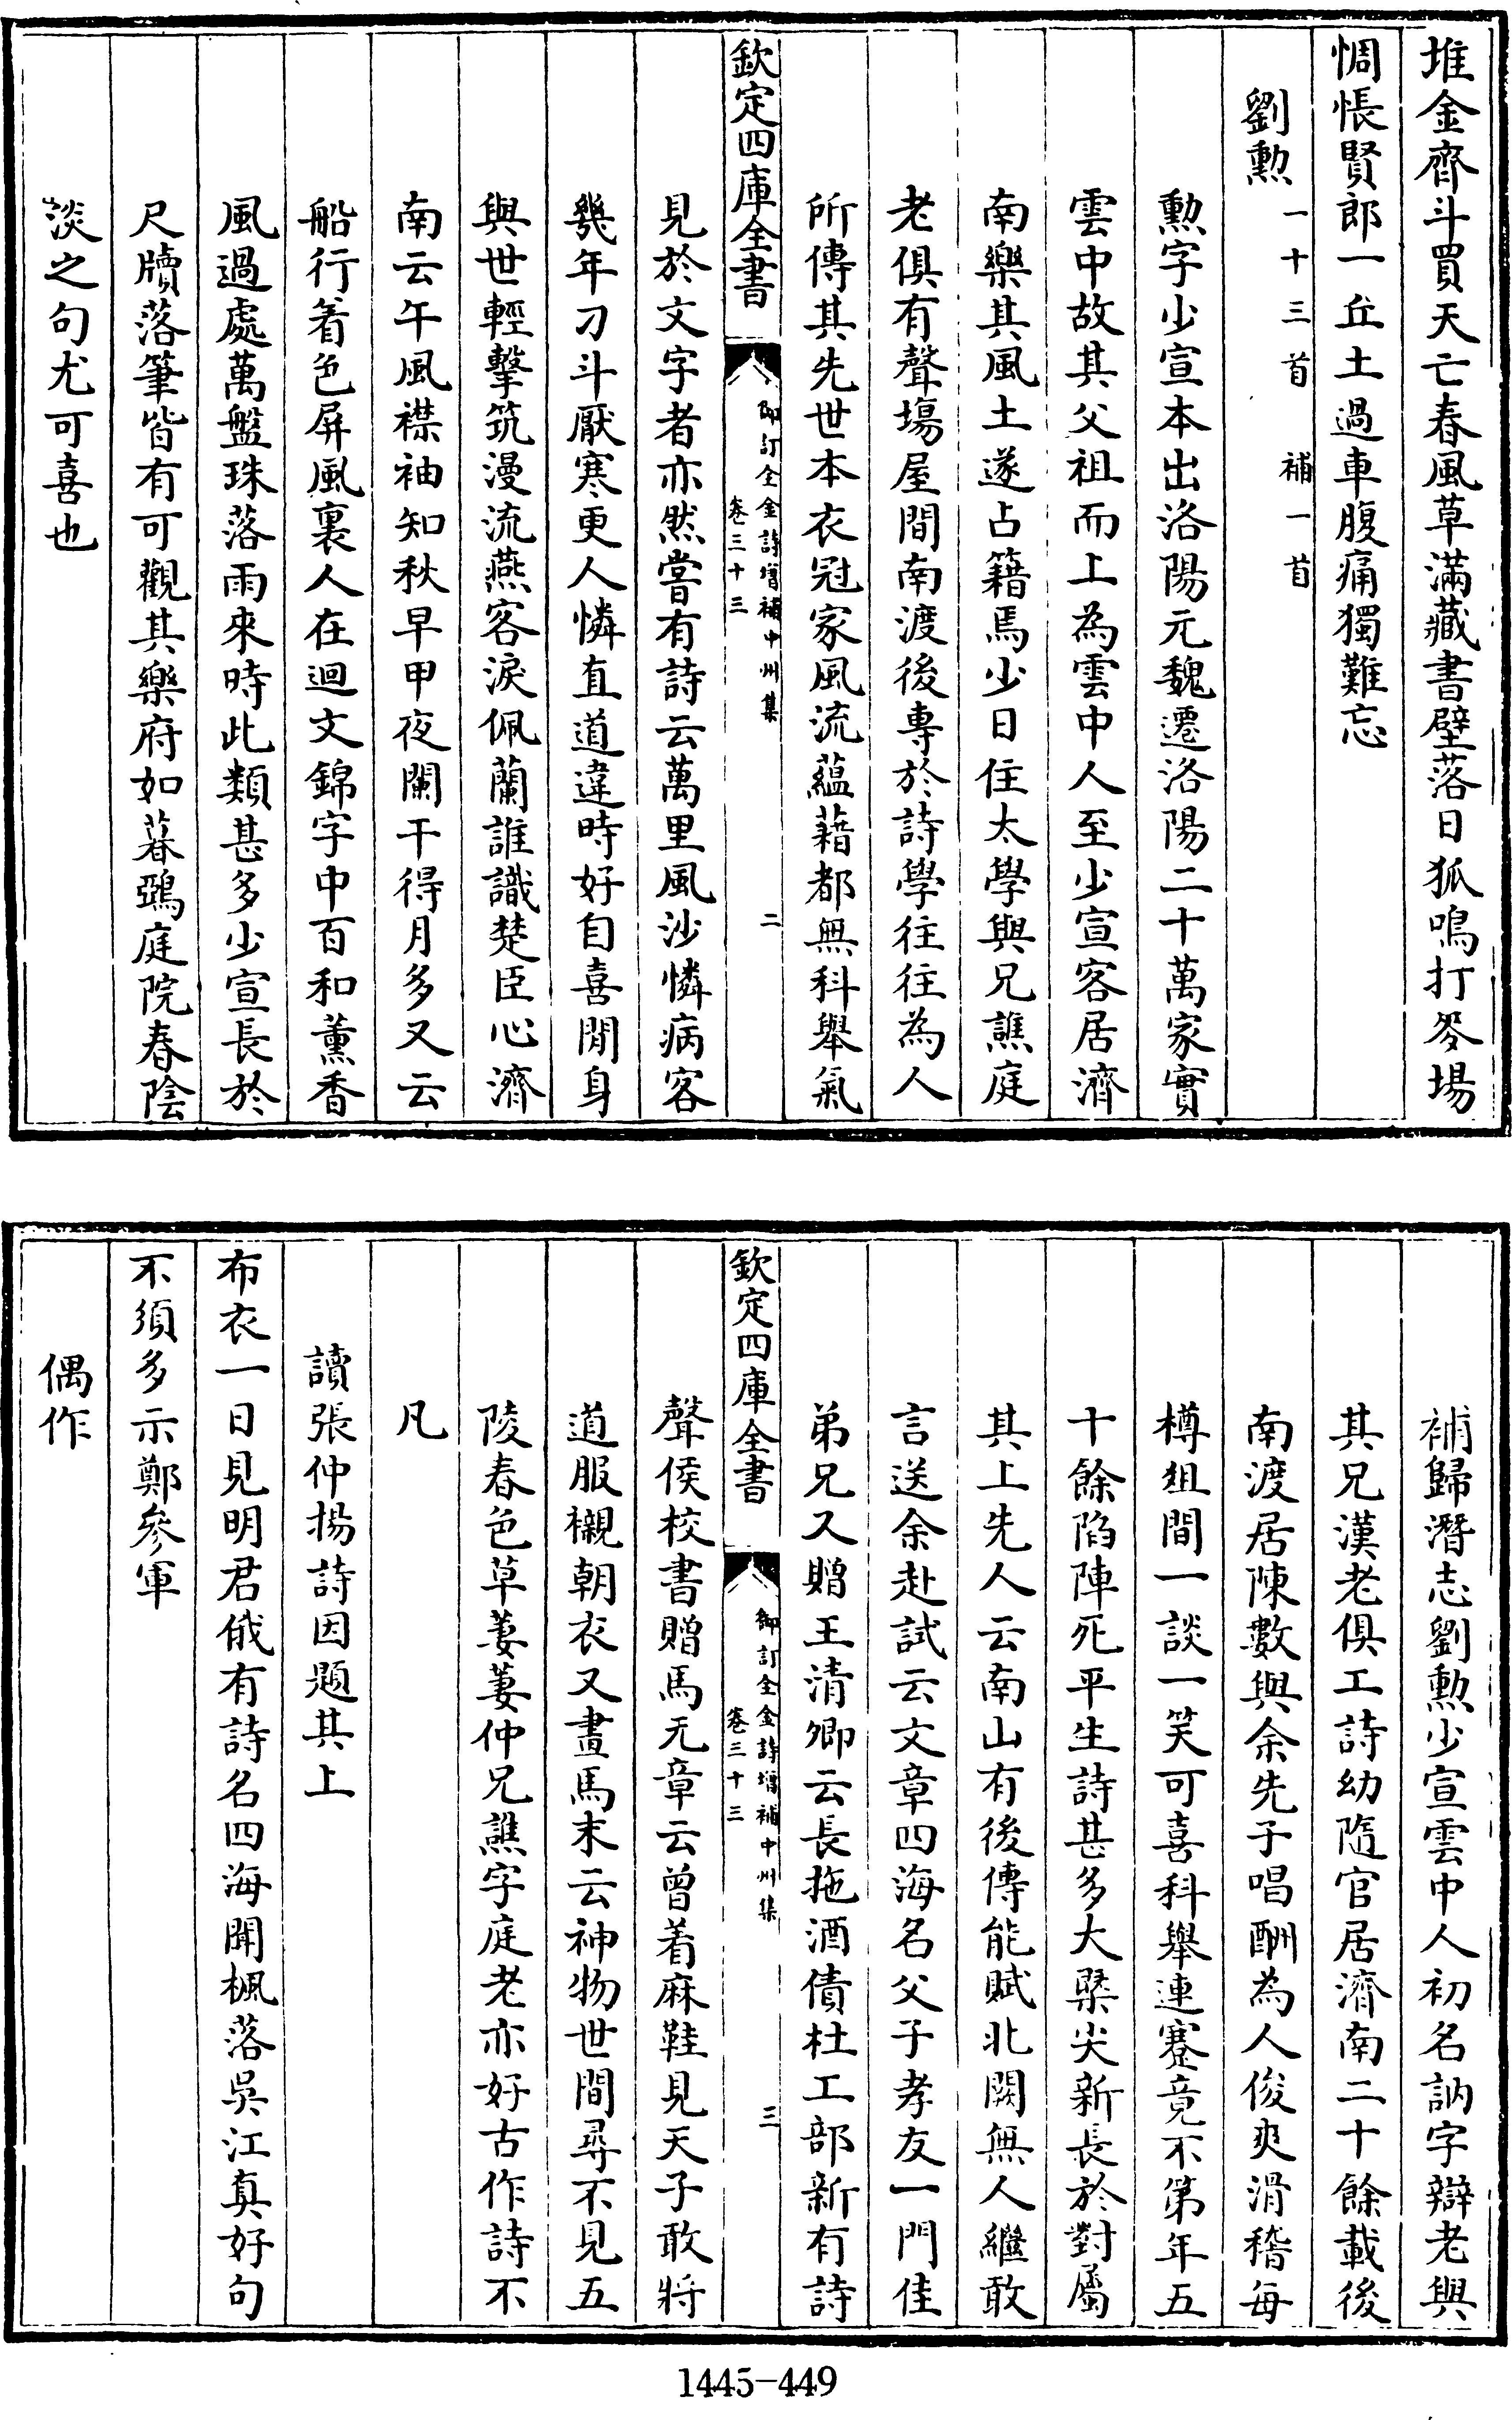 堆金齊斗買天亡春風草滿藏書壁落日狐鳴打麥場
惆悵賢郎一丘土過車腹痛獨難忘
劉勲一十三首補一首
勲字少宣本出洛陽元魏遷洛陽二十萬家實
雲中故其父祖而上為雲中人至少宣客居濟
南樂其風土遂占籍焉少日住太學與兄譙庭
老俱有聲塲屋間南渡後專於詩學往往為人
所傳其先世本衣冠家風流蘊藉都無科舉氣
欽定四庫全書
御訂全金詩増補中州集
卷三十三
二
見於文字者亦然嘗有詩云萬里風沙憐病客
幾年刁斗厭寒更人憐直道違時好自喜閒身
與世輕擊筑漫流燕客淚佩蘭誰識楚臣心濟
南云午風襟袖知秋早甲夜闌干得月多又云
船行着色屏風裏人在迴文錦字中百和薰香
風過處萬盤珠落雨來時此類甚多少宣長於
尺牘落筆皆有可觀其樂府如暮鵶庭院春陰
淡之句尤可喜也
補歸潛志劉勲少宣雲中人初名訥字辯老與
其兄漢老俱工詩幼隨官居濟南二十餘載後
南渡居陳數與余先子唱酬為人俊爽滑稽每
樽俎間一談一笑可喜科舉連蹇竟不第年五
十餘陷陣死平生詩甚多大槩尖新長於對屬
其上先人云南山有後傳能賦北闕無人繼敢
言送余赴試云文章四海名父子孝友一門佳
弟兄又贈王清卿云長拖酒債杜工部新有詩
欽定四庫全書
御訂全金詩増補中州集
卷三十三
三
聲侯校書贈馬元章云曾着麻鞋見天子敢將
道服襯朝衣又畫馬末云神物世間尋不見五
陵春色草萋萋仲兄譙字庭老亦好古作詩不
凡
讀張仲揚詩因題其上
布衣一日見明君俄有詩名四海聞楓落吳江真好句
不須多示鄭參軍
偶作
1445-449